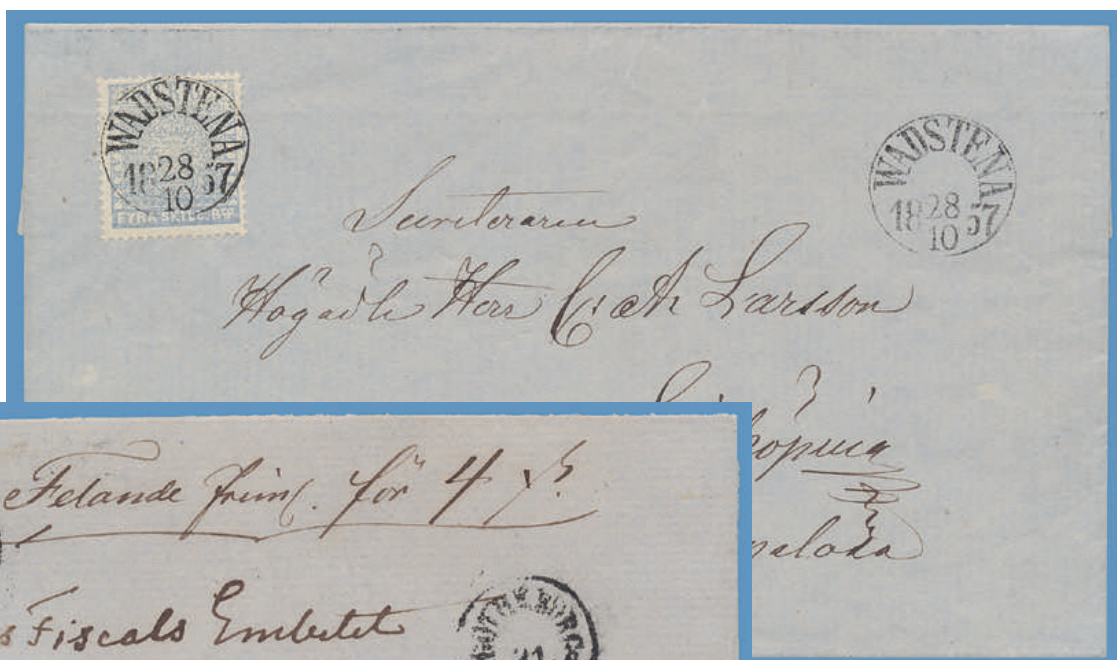 WADSTENA
18 28 57
10
FYRA SKILL. BCO
WADSTENA
18 28 57
10
Secreteraren
Högädle Herr Larsson
köping
Felande frim. för 4
Fiscals Embetet
21